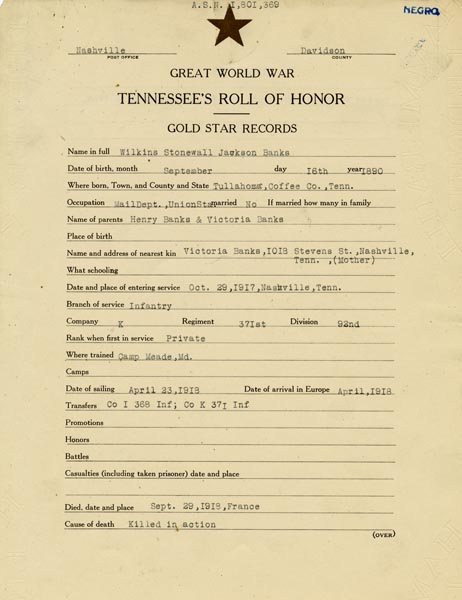 A.S.N. 1,801,369
NEGRO
Nashville Davidson
POST OFFICE COUNTY
GREAT WORLD WAR
TENNESSEE'S ROLL OF HONOR
GOLD STAR RECORDS
Name in full Wilkins Stonewall Jackson Banks
Date of birth, month September day 16th year 1890
Where born, Town, and County and State Tullahoma, Coffee Co., Tenn.
Occupation MailDept., UnionSta married No If married how many in family
Name of parents Henry Banks & Victoria Banks
Place of birth
Name and address of nearest kin Victoria Banks, 1018 Stevens St., Nashville,
Tenn., (Mother)
What schooling
Date and place of entering service Oct. 29, 1917, Nashville, Tenn.
Branch of service Infantry
Company K Regiment 371st Division 92nd
Rank when first in service Private
Where trained Camp Meade, Md.
Camps
Date of sailing April 23, 1918 Date of arrival in Europe April, 1918
Transfers Co I 368 Inf; Co K 371 Inf
Promotions
Honors
Battles
Casualties (including taken prisoner) date and place
Died, date and place Sept. 29, 1918, France
Cause of death Killed in action
(OVER)